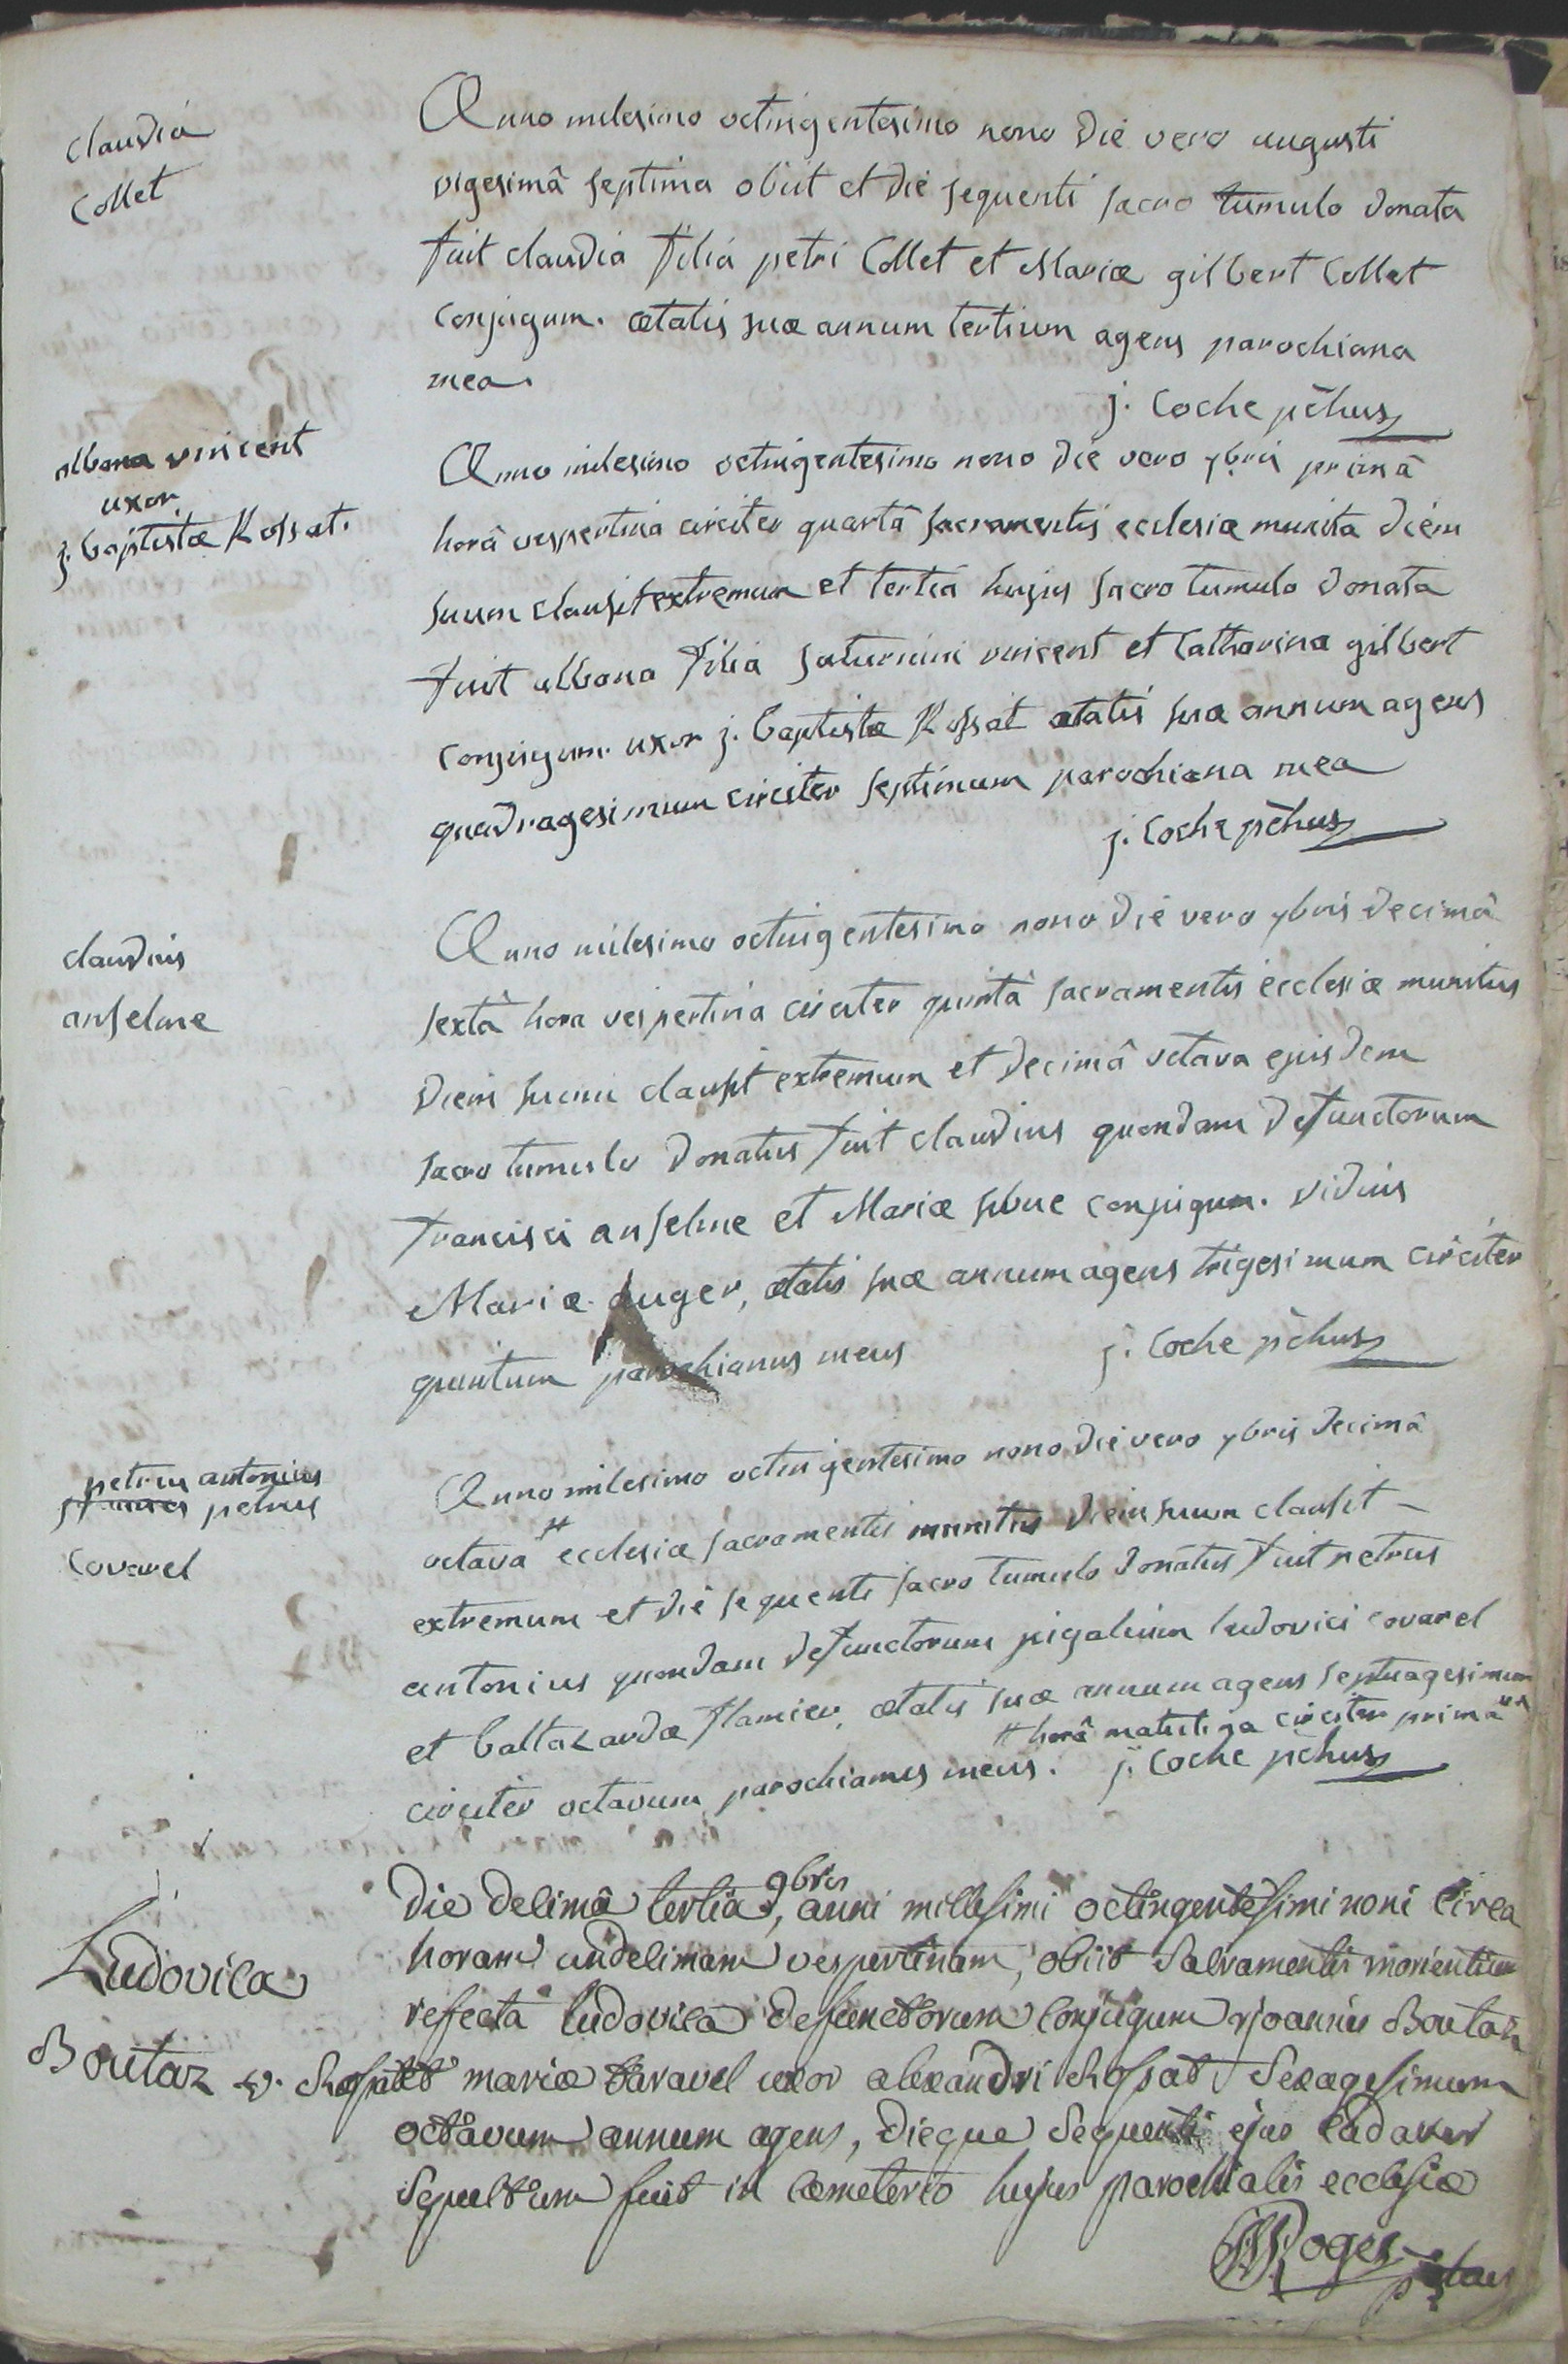 claudia
Collet
Anno milesimo octingentesimo nono die vero augusti
vigesimâ septima obiit et die sequenti sacro tumulo donata
fuit claudia filia petri Collet et Mariæ gilbert Collet
conjugum. ætatis suæ annum tertium agens parochiana
mea.
j. Coche pc̄hus
albana vincent
uxor
j. baptistæ Rossat.
Anno milesimo octingentesimo nono die vero 7bris primâ
horâ vespertina circiter quartâ sacramentis ecclesiæ munita diem
suum clausit extremum et tertia hujus sacro tumulo donata
fuit albana filia saturnini vincent et Catharina gilbert
conjugum. uxor j. baptistæ Rossat ætatis suæ annum agens
quadragesimum circiter septimum parochiana mea
j. Coche pc̄hus
claudius
anselme
Anno milesimo octingentesimo nono die vero 7bris decimâ
sextâ hora vespertina circiter quintâ sacramentis ecclesiæ munitus
diem suum clausit extremum et decimâ octava ejusdem
sacro tumulo donatus fuit claudius quondam defunctorum
francisci anselme et Mariæ sibue conjugum. viduus
Mariæ auger, ætatis suæ annum agens trigesimum circiter
quintum parochianus meus
j. Coche pc̄hus
petrus antonius
petrus
Covarel
Anno milesimo octingentesimo nono die vero 7bris decimâ
octava # ecclesiæ sacramentis munitus diem suum clausit
extremum et die sequenti sacro tumulo donatus fuit petrus
antonius quondam defunctorum ludovici covarel
et baltazardæ flamier, ætatis suæ annum agens septuagesimum
# horâ matutina circiter primâ
circiter octavum parochianus meus. j. Coche pc̄hus
Ludovica
Boutaz v. Rossat
Die decimâ tertia 9bris, anni millesimi octingentesimi noni circa
horam undecimam vespertinam, obiit Sacramentis morientium
refecta ludovica defunctorum conjugum joannis Boutaz
et mariæ taravel uxor alexandri Rossat, Sexagesimum
octavum annum agens, dieque Sequenti ejus cadaver
Sepultum fuit in cæmeterio hujus parochialis ecclesiæ
Roger